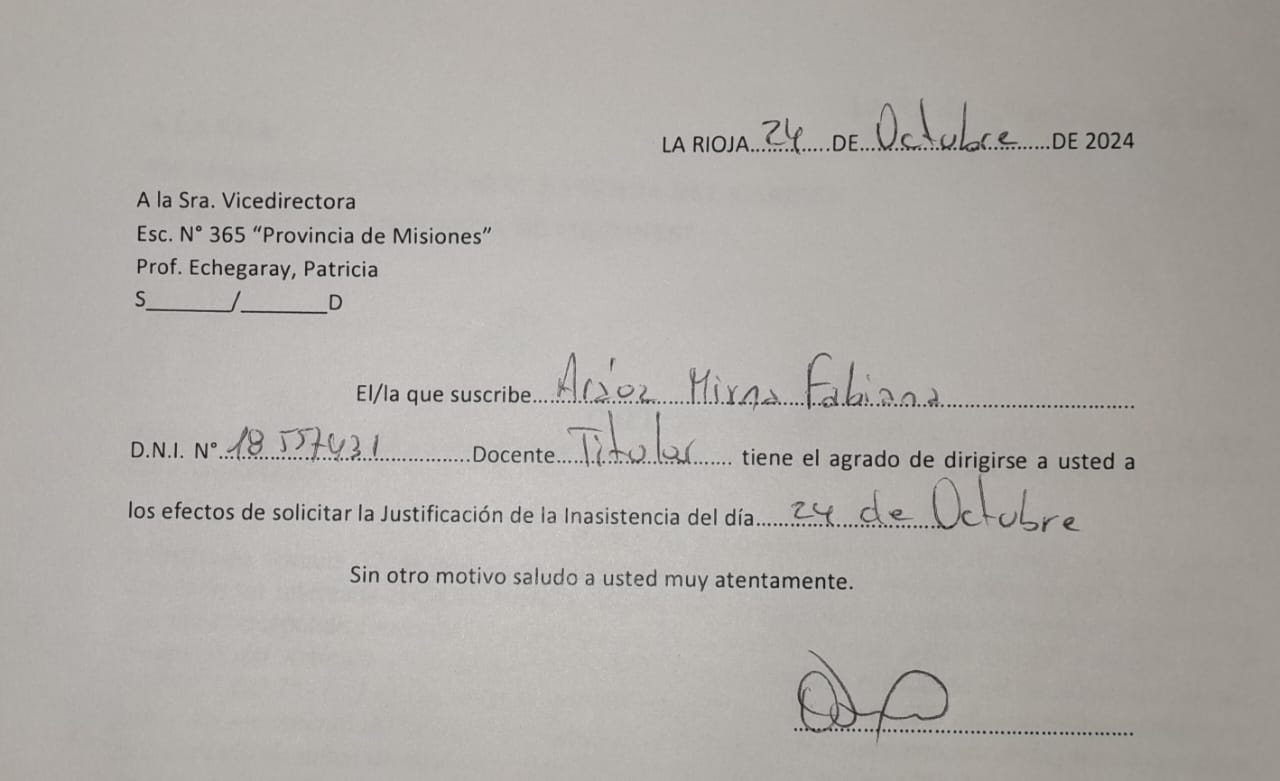 LA RIOJA 24 DE Octubre DE 2024
A la Sra. Vicedirectora
Esc. N° 365 “Provincia de Misiones”
Prof. Echegaray, Patricia
S______/______D
El/la que suscribe Mirna Fabiana
D.N.I. N° 18 557431 Docente Titular tiene el agrado de dirigirse a usted a
los efectos de solicitar la Justificación de la Inasistencia del día 24 de Octubre
Sin otro motivo saludo a usted muy atentamente.